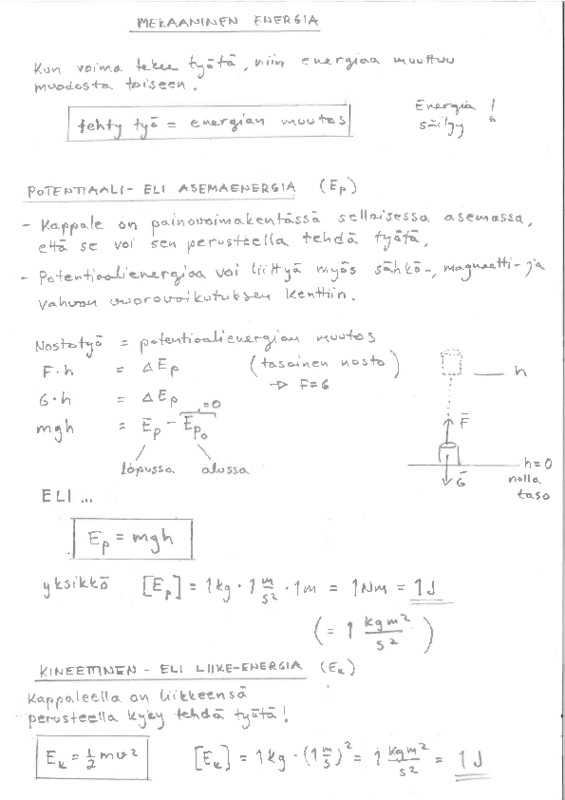 MEKAANINEN ENERGIA
Kun voima tekee työtä, niin energiaa muuttuu
muodosta toiseen.
tehty työ = energian muutos
Energia !
säilyy
POTENTIAALI- ELI ASEMAENERGIA (Ep)
- Kappale on painovoimakentässä sellaisessa asemassa,
että se voi sen perusteella tehdä työtä.
- Potentiaalienergiaa voi liittyä myös sähkö-, magneetti- ja
vahvan vuorovaikutuksen kenttiin.
Nostotyö = potentiaalienergian muutos
F·h = ΔEp (tasainen nosto
→ F=G)
G·h = ΔEp
=0
mgh = Ep - Ep₀
lopussa alussa
h
F̄
h=0
nolla
taso
Ḡ
ELI ...
Ep = mgh
yksikkö [Ep] = 1kg · 1 m/s² · 1m = 1Nm = 1J
(= 1 kgm²/s²)
KINEETTINEN - ELI LIIKE-ENERGIA (Ek)
Kappaleella on liikkeensä
perusteella kyky tehdä työtä!
Ek = ½mv² [Ek] = 1kg · (1 m/s)² = 1 kgm²/s² = 1J